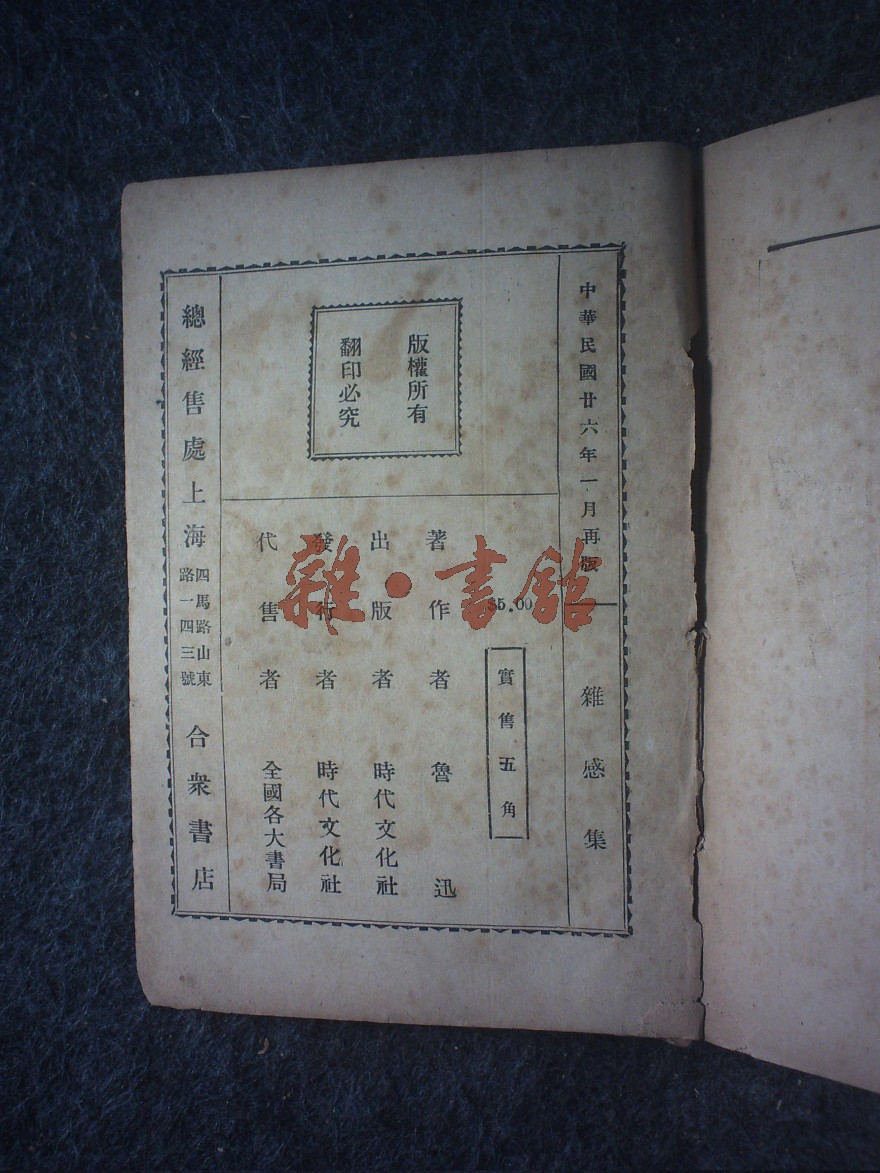 中華民國廿六年一月再版
雜感集
版權所有
翻印必究
$5.00
實售五角
著作者 魯迅
出版者 時代文化社
發行者 時代文化社
代售者 全國各大書局
總經售處上海四馬路山東路一四三號合衆書店
雜·書館